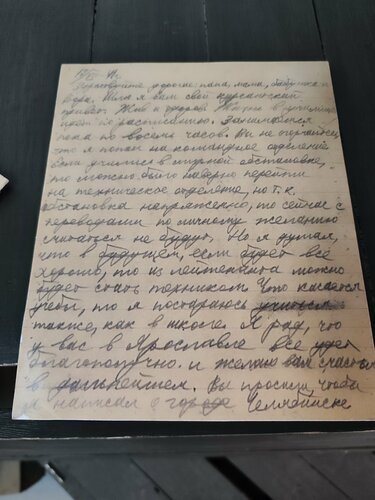 Здравствуйте дорогие папа, мама, бабушка и
Шлю я вам свой курсантский
привет. Жив и здоров. Жизнь в училище
идет по расписанию. Занимаемся
пока по восемь часов. Вы не огорчайтесь
что я попал на командное отделение
если учились в мирной обстановке,
то можно было наверно перейти
на техническое отделение, но т.к.
обстановка напряженно, то сейчас с
переводами по личному желанию
считаться не будут. Но я думал,
что в будущем, если будет всё
хорошо, то из лейтенанта можно
будет стать техником. Что касается
учебы, то я постараюсь учиться
также, как в школе. Я рад, что
у вас в Ярославле все идет
благополучно. и желаю вам счастья
в дальнейшем. Вы просили, чтобы
я написал о городе Челябинске